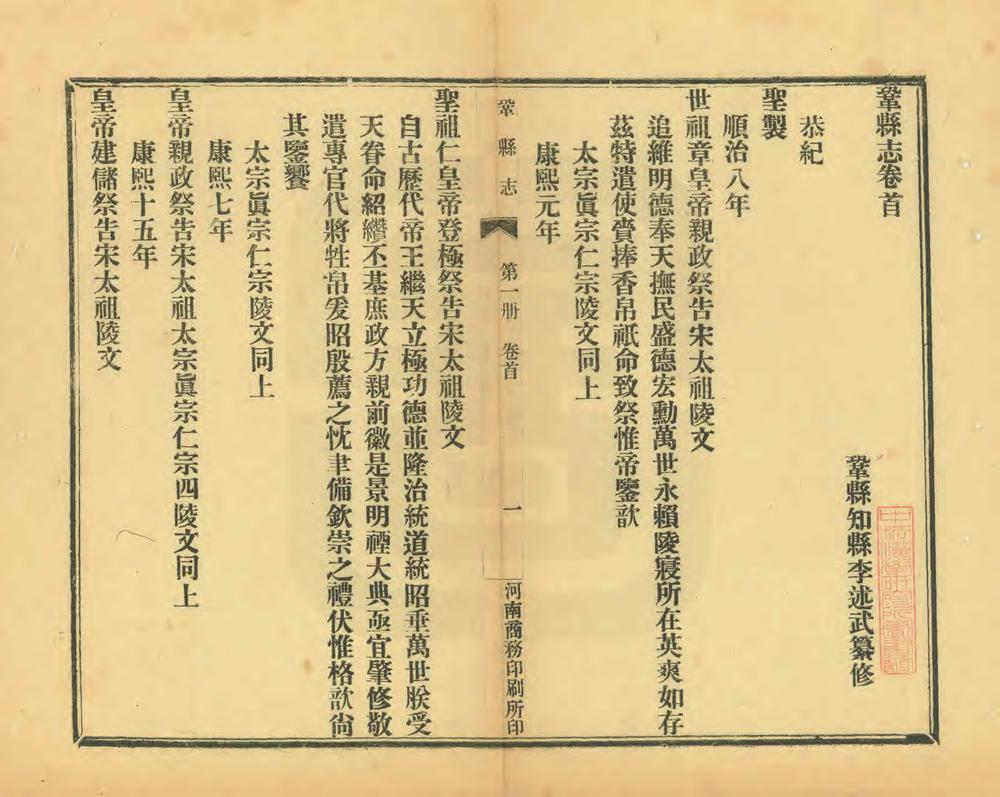 鞏縣志卷首
鞏縣知縣李述武纂修
恭紀
聖製
順治八年
世祖章皇帝親政祭告宋太祖陵文
追維明德奉天撫民盛德宏勳萬世永賴陵寢所在英爽如存
茲特遣使賫捧香帛祇命致祭惟帝鑒歆
太宗眞宗仁宗陵文同上
康熙元年
聖祖仁皇帝登極祭告宋太祖陵文
自古歷代帝王繼天立極功德並隆治統道統昭垂萬世朕受
天眷命紹纘丕基庶政方親前徽是景明禋大典亟宜肇修敬
遣專官代將牲帛爰昭殷薦之忱聿備欽崇之禮伏惟格歆尙
其鑒饗
太宗眞宗仁宗陵文同上
康熙七年
皇帝親政祭告宋太祖太宗眞宗仁宗四陵文同上
康熙十五年
皇帝建儲祭告宋太祖陵文
鞏縣志 第一册 卷首 一 河南商務印刷所印